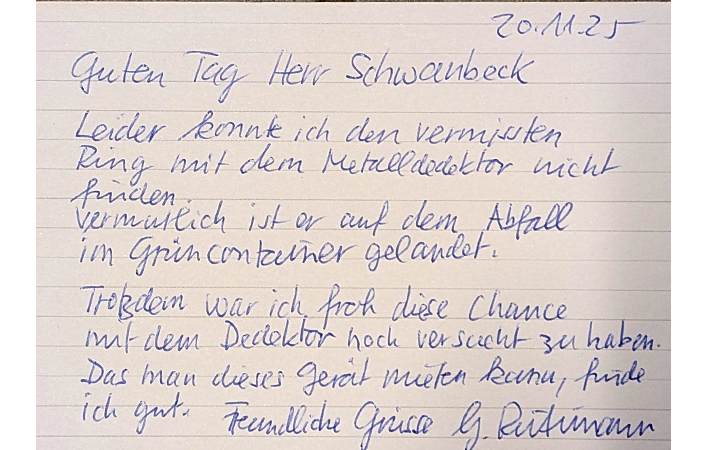 20.11.25
Guten Tag Herr Schwanbeck
Leider konnte ich den vermissten
Ring mit dem Metalldedektor nicht
finden.
Vermutlich ist er auf dem Abfall
im Grüncontainer gelandet.
Trotzdem war ich froh diese Chance
mit dem Dedektor noch versucht zu haben.
Das man dieses Gerät mieten kann, finde
ich gut. Freundliche Grüsse G. Rütimann